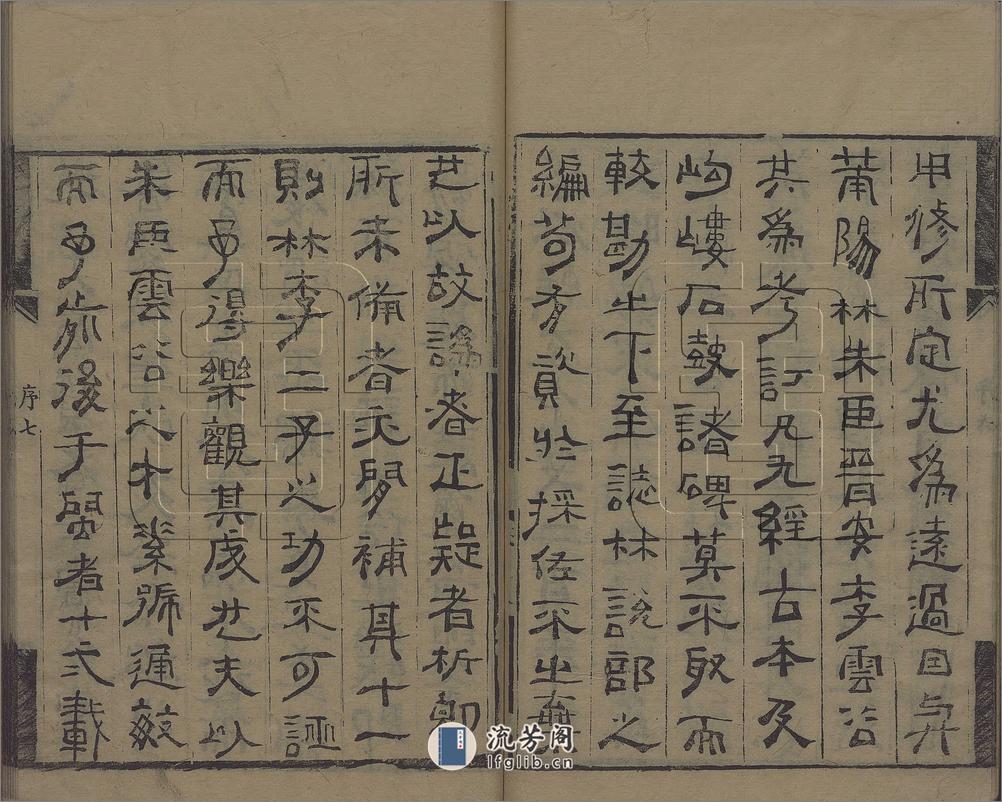 用修所定尤為遠過因与
莆陽林朱臣晉安李雲谷
共為考訂凡九經古本及
岣嶁石鼓諸碑莫不取而
較勘之下至誌林說部之
編苟有資於採佐不之
也以故譌者正疑者析即
所未備者亦間補其十一
則林李二子之功不可誣
而予得樂觀其成也夫以
朱臣雲谷之才素號通敏
而予前後于閩者十弍載
序七
流芳阁
lfglib.cn